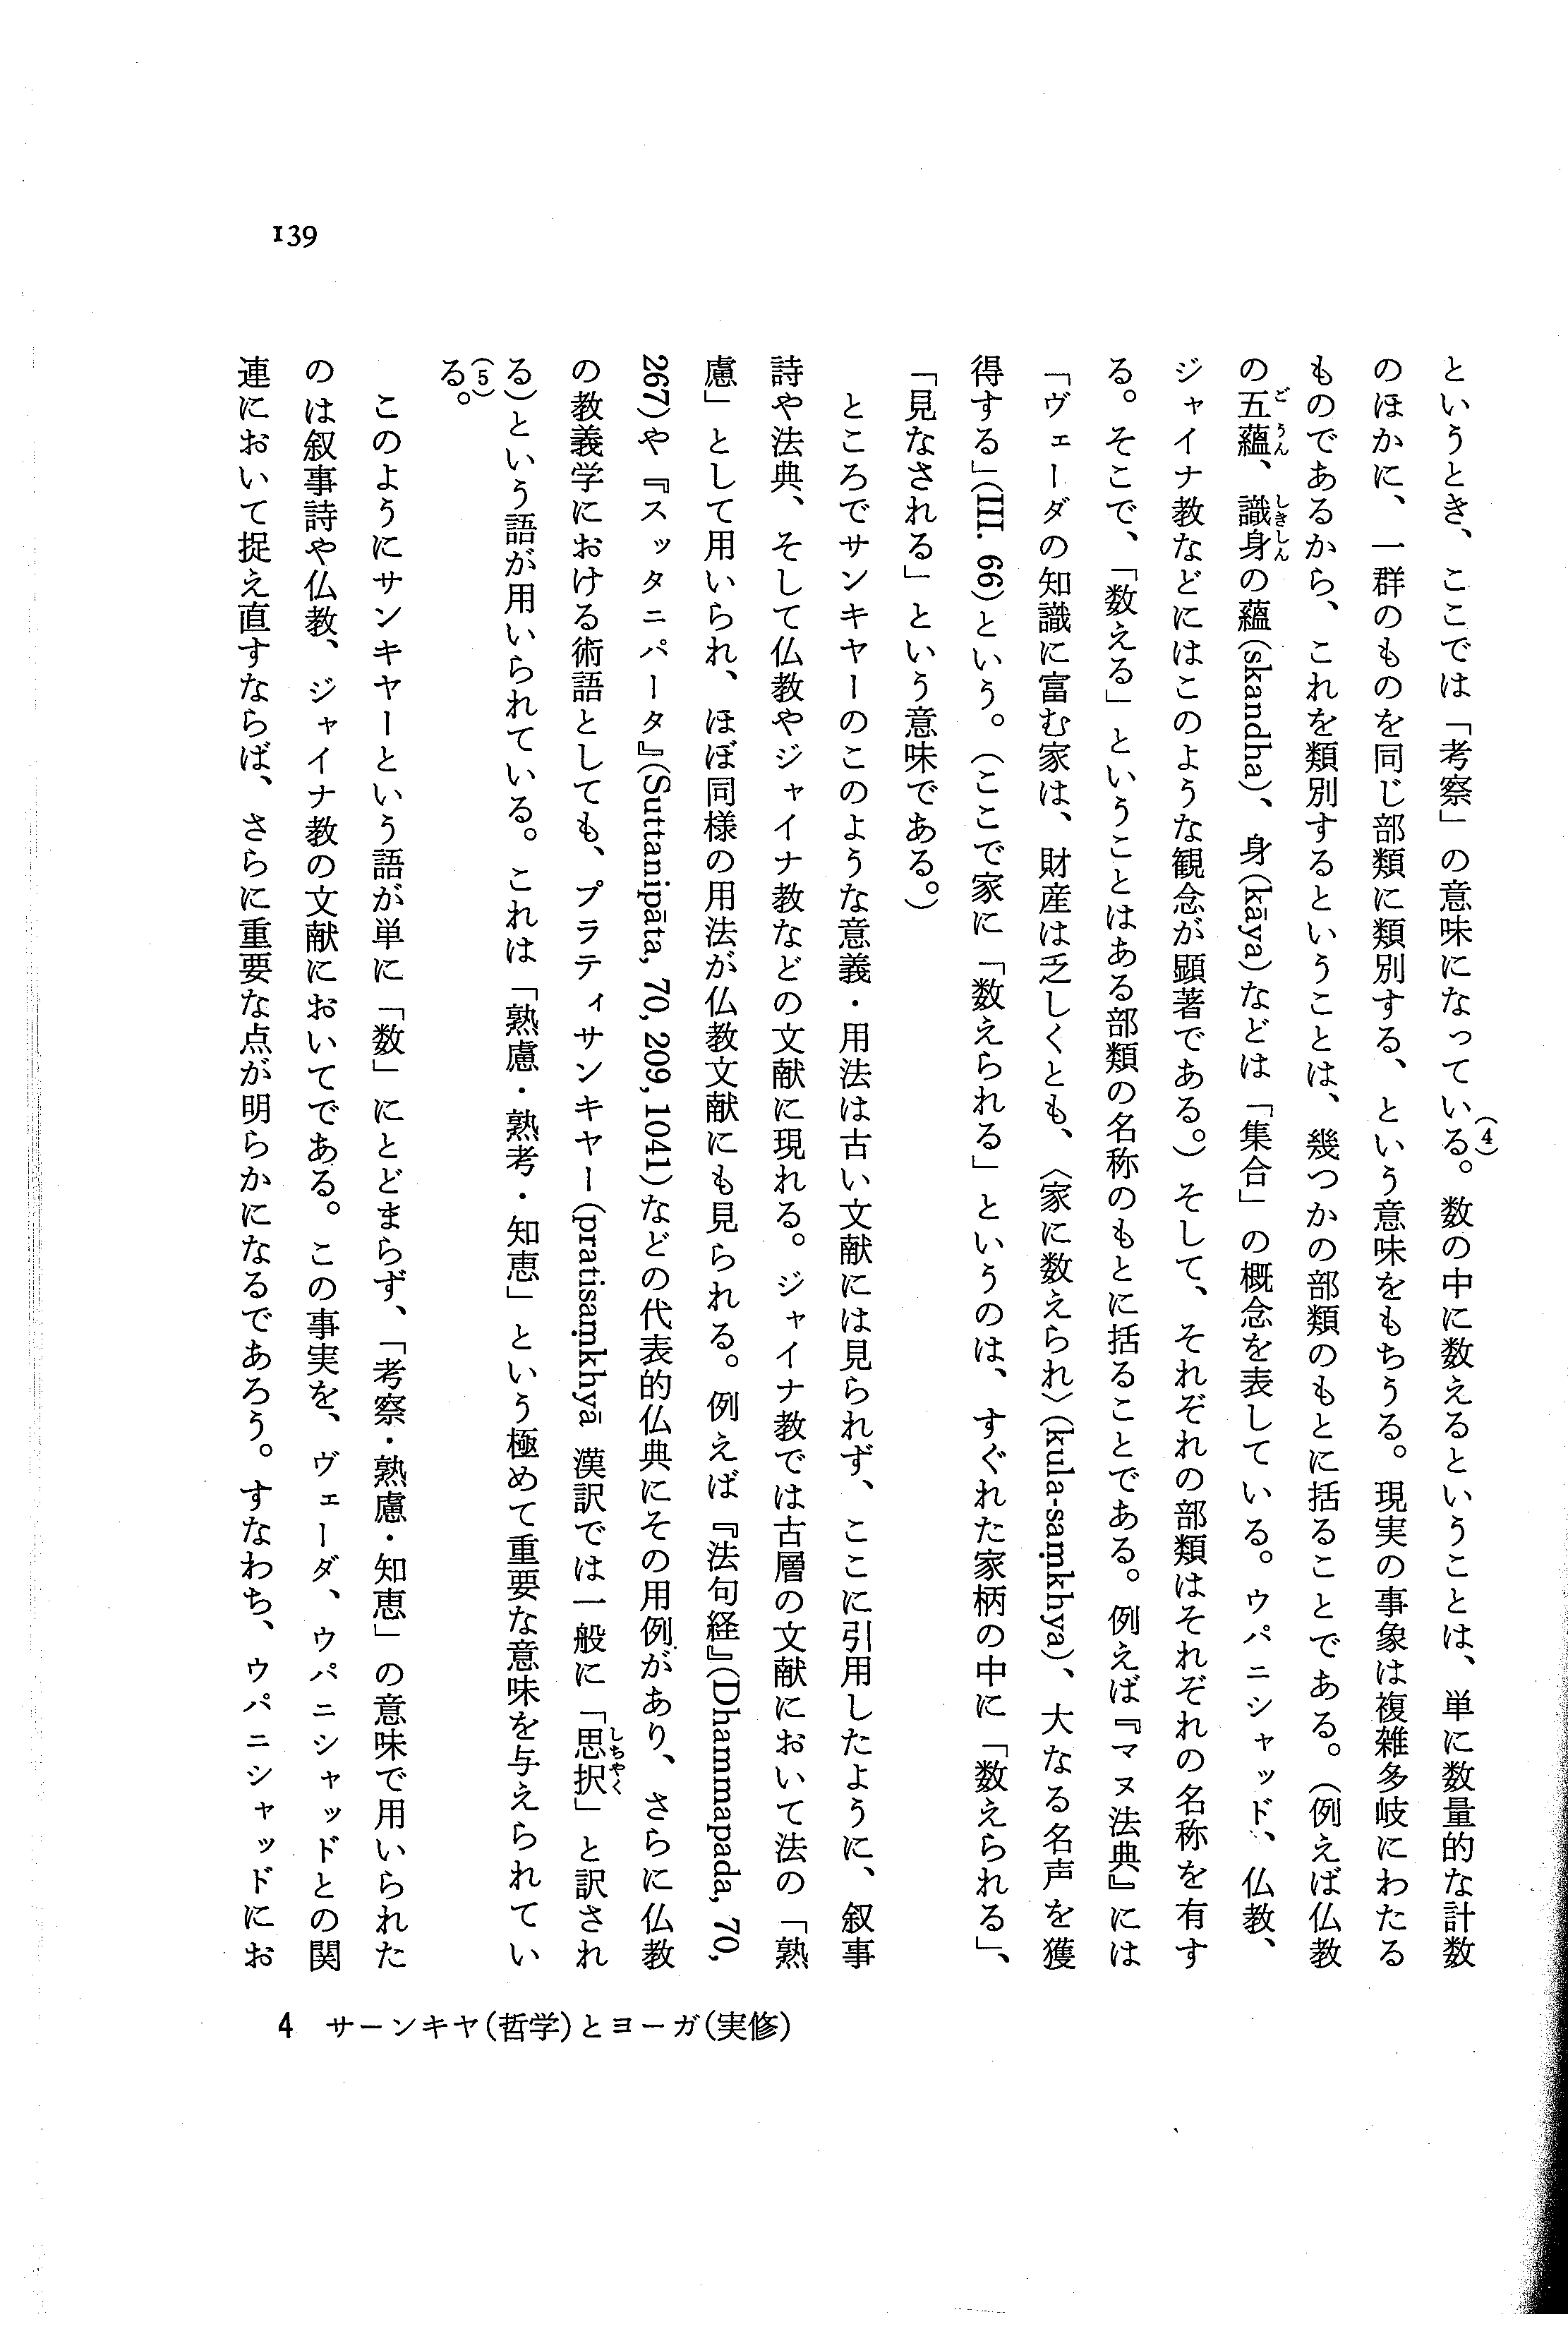 139
というとき、ここでは「考察」の意味になっている。(4)数の中に数えるということは、単に数量的な計数
のほかに、一群のものを同じ部類に類別する、という意味をもちうる。現実の事象は複雑多岐にわたる
ものであるから、これを類別するということは、幾つかの部類のもとに括ることである。(例えば仏教
の五蘊(ごうん)、識身(しきしん)の蘊(skandha)、身(kāya)などは「集合」の概念を表している。ウパニシャッド、仏教、
ジャイナ教などにはこのような観念が顕著である。)そして、それぞれの部類はそれぞれの名称を有す
る。そこで、「数える」ということはある部類の名称のもとに括ることである。例えば『マヌ法典』には
「ヴェーダの知識に富む家は、財産は乏しくとも、〈家に数えられ〉(kula-saṃkhya)、大なる名声を獲
得する」(III. 66)という。(ここで家に「数えられる」というのは、すぐれた家柄の中に「数えられる」、
「見なされる」という意味である。)
ところでサンキヤーのこのような意義・用法は古い文献には見られず、ここに引用したように、叙事
詩や法典、そして仏教やジャイナ教などの文献に現れる。ジャイナ教では古層の文献において法の「熟
慮」として用いられ、ほぼ同様の用法が仏教文献にも見られる。例えば『法句経』(Dhammapada, 70,
267)や『スッタニパータ』(Suttanipāta, 70, 209, 1041)などの代表的仏典にその用例があり、さらに仏教
の教義学における術語としても、プラティサンキヤー(pratisaṃkhyā 漢訳では一般に「思択(しちやく)」と訳され
る)という語が用いられている。これは「熟慮・熟考・知恵」という極めて重要な意味を与えられてい
る。(5)
このようにサンキヤーという語が単に「数」にとどまらず、「考察・熟慮・知恵」の意味で用いられた
のは叙事詩や仏教、ジャイナ教の文献においてである。この事実を、ヴェーダ、ウパニシャッドとの関
連において捉え直すならば、さらに重要な点が明らかになるであろう。すなわち、ウパニシャッドにお
4 サーンキヤ(哲学)とヨーガ(実修)